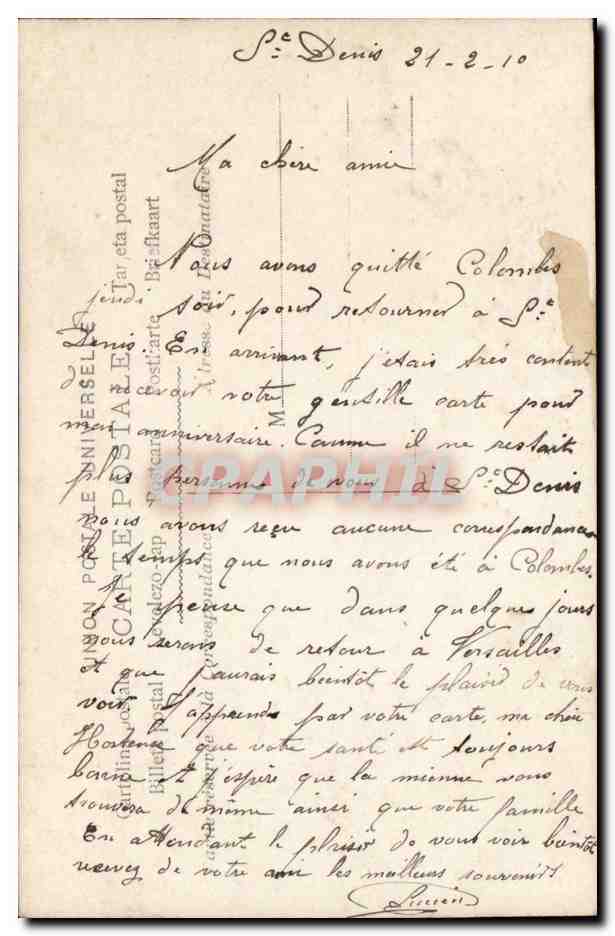 St Denis 21-2-10
Ma chère amie
Nous avons quitté Colombes
jeudi soir, pour retourner à St
Denis. En arrivant, j'etais très content
de recevoir votre gentille carte pour
mon anniversaire. Comme il ne restait
plus personne de nous à St Denis
nous avons reçu aucune correspondance
le temps que nous avons été à Colombes.
Je pense que dans quelque jours
nous serons de retour à Versailles
et que j'aurais bientôt le plaisir de vous
voir. J'apprends par votre carte, ma chère
Hortence que votre santé est toujours
bonne et j'éspère que la mienne vous
trouvera de même ainsi que votre famille
En attendant le plaisir de vous voir bientôt
recevez de votre ami les meilleurs souvenirs
Lucien
UNION POSTALE UNIVERSELLE
CARTE POSTALE
Tarjeta postal
Briefkaart
Postkarte
Postcard
Levelezo-Lap
Cartolina postale
Billete postal
Adresse du Destinataire
Côté réservé à la Correspondance
M
CPAPHIL